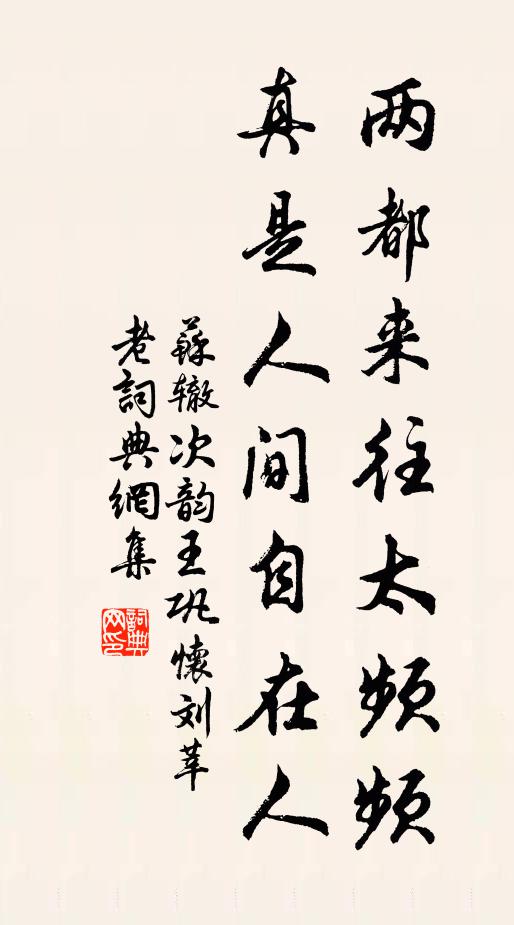 两都来往太频频
真是人间自在人
蘇辙次韵王巩懷刘莘
老詞典網集
詞典網印